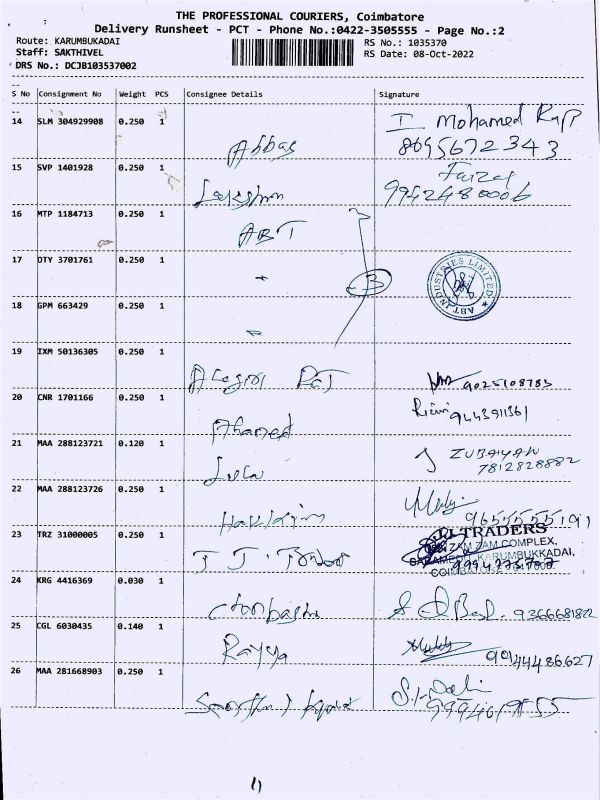 THE PROFESSIONAL COURIERS, Coimbatore
Delivery Runsheet - PCT - Phone No.:0422-3505555 - Page No.:2
Route: KARUMBUKADAI RS No.: 1035370
Staff: SAKTHIVEL RS Date: 08-Oct-2022
DRS No.: DCJB103537002
S No Consignment No Weight PCS Consignee Details Signature
14 SLM 304929908 0.250 1 Abbas I Mohamed
8695672343
15 SVP 1401928 0.250 1 Faizal
9942480006
16 MTP 1184713 0.250 1 ABT
17 OTY 3701761 0.250 1 3 ABT INDUSTRIES LIMITED
18 GPM 663429 0.250 1
19 IXM 50136305 0.250 1 9025108783
20 CNR 1701166 0.250 1 Ahamed 9443911361
21 MAA 288123721 0.120 1 ZUBAIYAN
7812828882
22 MAA 288123726 0.250 1 Hakkim 9655555191
23 TRZ 31000005 0.250 1 TRADERS
ZAM ZAM COMPLEX,
KARUMBUKKADAI,
24 KRG 4416369 0.030 1 9366681822
25 CGL 6030435 0.140 1 Rayya 9944486627
26 MAA 281668903 0.250 1